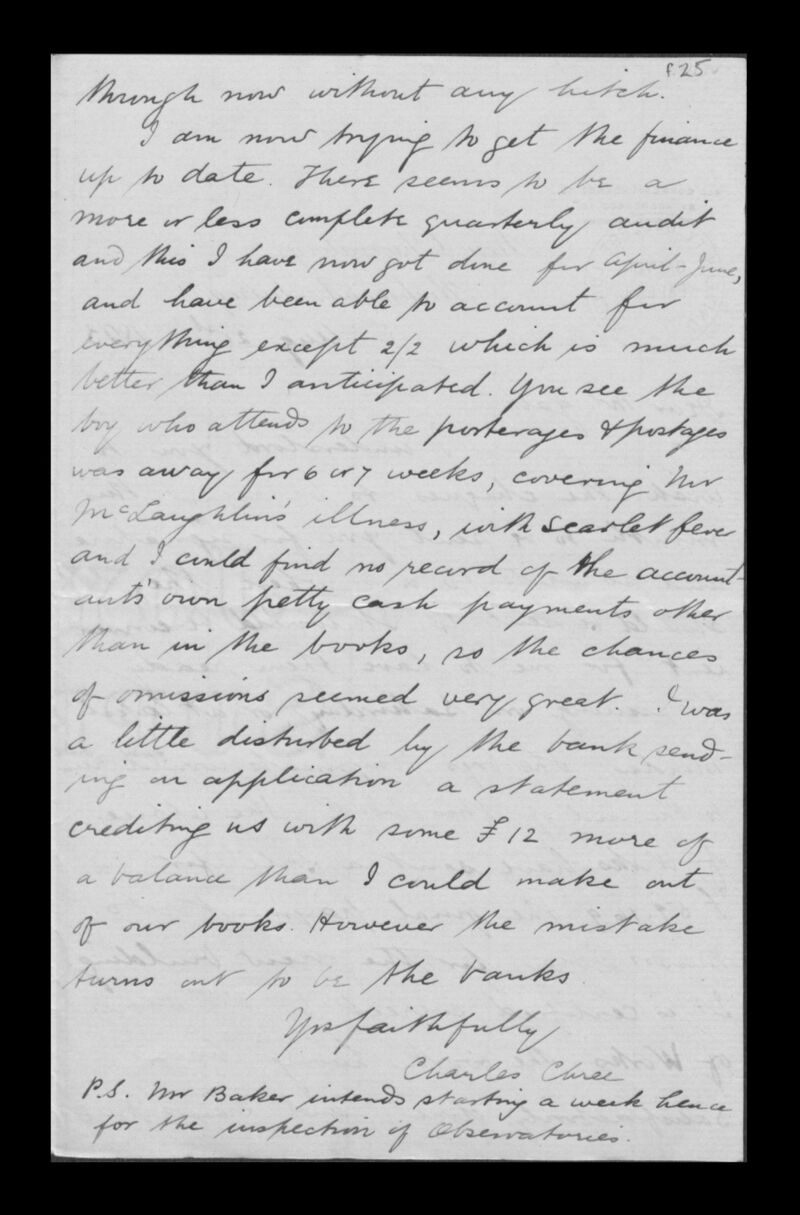 f.25
through now without any hitch.
I am now trying to get the finance
up to date. There seems to be a
more or less complete quarterly audit
and this I have now got done for April-June,
and have been able to account for
everything except 2/2 which is much
better than I anticipated. You see the
boy who attends to the porterages & postages
was away for 6 or 7 weeks, covering Mr
McLaughlin's illness, with scarlet fever
and I could find no record of the account-
ant's own petty cash payments other
than in the books, so the chances
of omissions seemed very great. I was
a little disturbed by the bank send-
ing on application a statement
crediting us with some £12 more of
a balance than I could make out
of our books. However the mistake
turns out to be the banks.
Yrs faithfully
Charles Chree
P.S. Mr Baker intends starting a week hence
for the inspection of Observatories.